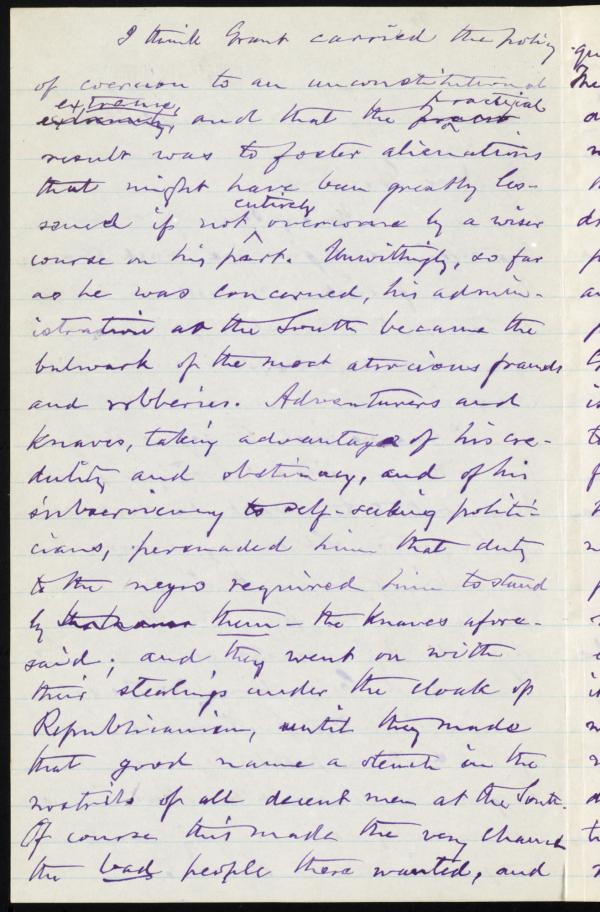 I think Grant carried the policy
of coercion to an unconstitutional
extreme,
extremity, and that the practical
result was to foster alienations
that might have been greatly les-
sened if not entirely overcome by a wiser
course on his part. Unwittingly, so far
as he was concerned, his admin-
istration at the South became the
bulwark of the most atrocious frauds
and robberies. Adventurers and
knaves, taking advantage of his cre-
dulity and obstinacy, and of his
subserviency to self-seeking politi-
cians, persuaded him that duty
to the negro required him to stand
by them - the knaves afore-
said; and they went on with
their stealings under the cloak of
Republicanism, until they made
that good name a stench in the
nostrils of all decent men at the South.
Of course this made the very chance
the bad people there wanted, and